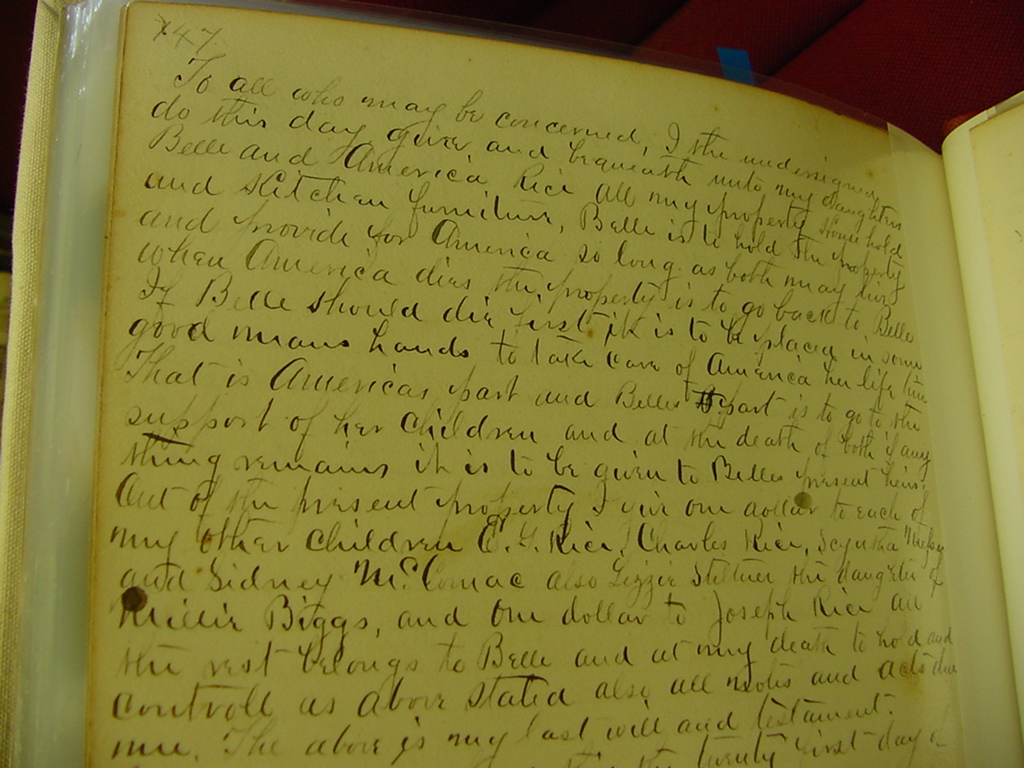 247
To all who may be concerned, I the undersigned
do this day give and bequeath unto my daughters
Belle and America Rice all my property household
and kitchen furniture, Belle is to hold the property
and provide for America so long as both may live
when America dies the property is to go back to Belle
If Belle should die first it is to be placed in some
good means hands to take care of America her life time
That is Americas part and Belles part is to go to the
support of her children and at the death of both if any
thing remains it is to be given to Belles present heirs
Out of the present property I give one dollar to each of
my other children Rice, Charles Rice,
and Sidney McComac also Lizzie the daughter of
Biggs, and one dollar to Joseph Rice all
the rest belongs to Belle and at my death to hold and
controll as above stated also all notes and due
me. The above is my last will and testament.
first day